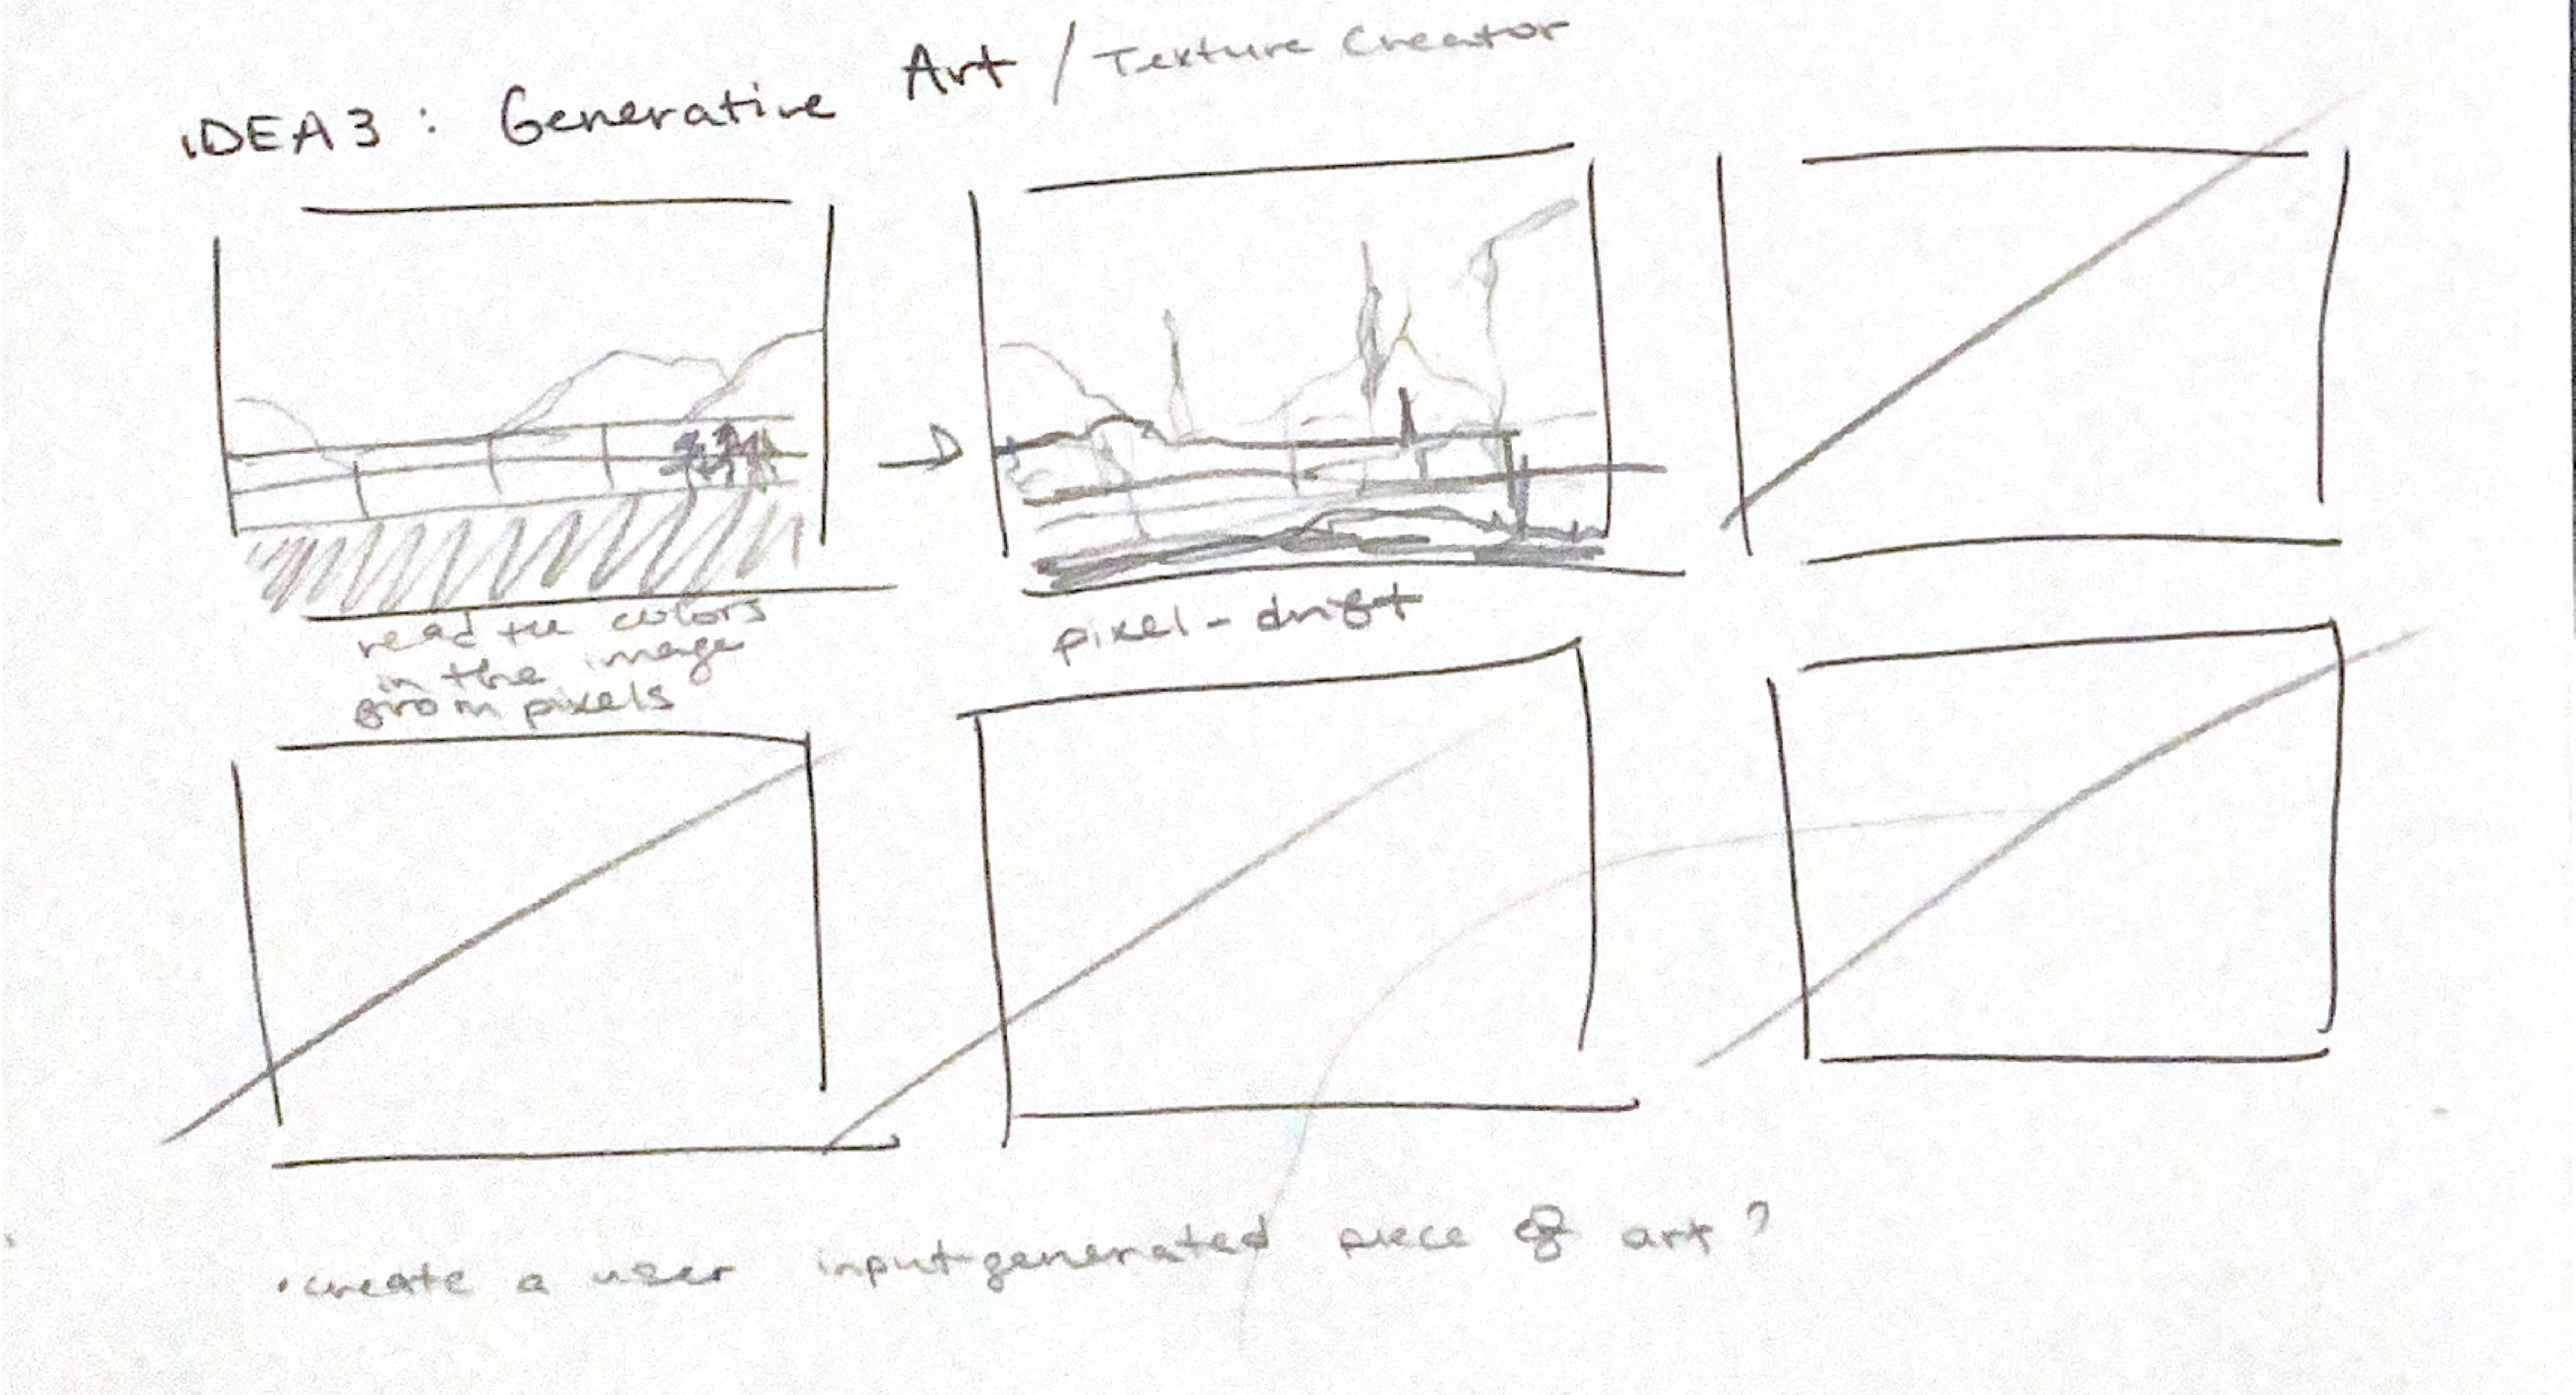 IDEA3 : Generative Art / Texture Creator
read the colors
in the image
from pixels
pixel-drift
• create a user input-generated piece of art?